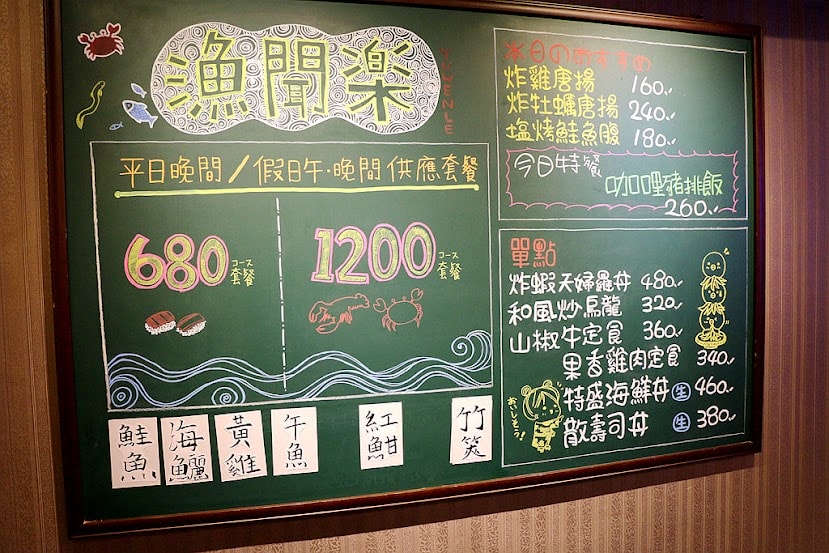 漁聞楽
YUWENLE
平日晚間/假日午·晚間供應套餐
680 コース 套餐
1200 コース 套餐
鮭魚
海鱺
黃雞
午魚
紅魽
竹筴
本日のおすすめ
炸雞唐揚 160
炸牡蠣唐揚 240
塩烤鮭魚腹 180
今日特餐
咖哩豬排飯
260
單點
炸蝦天婦羅丼 480
和風炒烏龍 320
山椒牛定食 360
果香雞肉定食 340
特盛海鮮丼 生 460
散壽司丼 生 380
おいしそう!